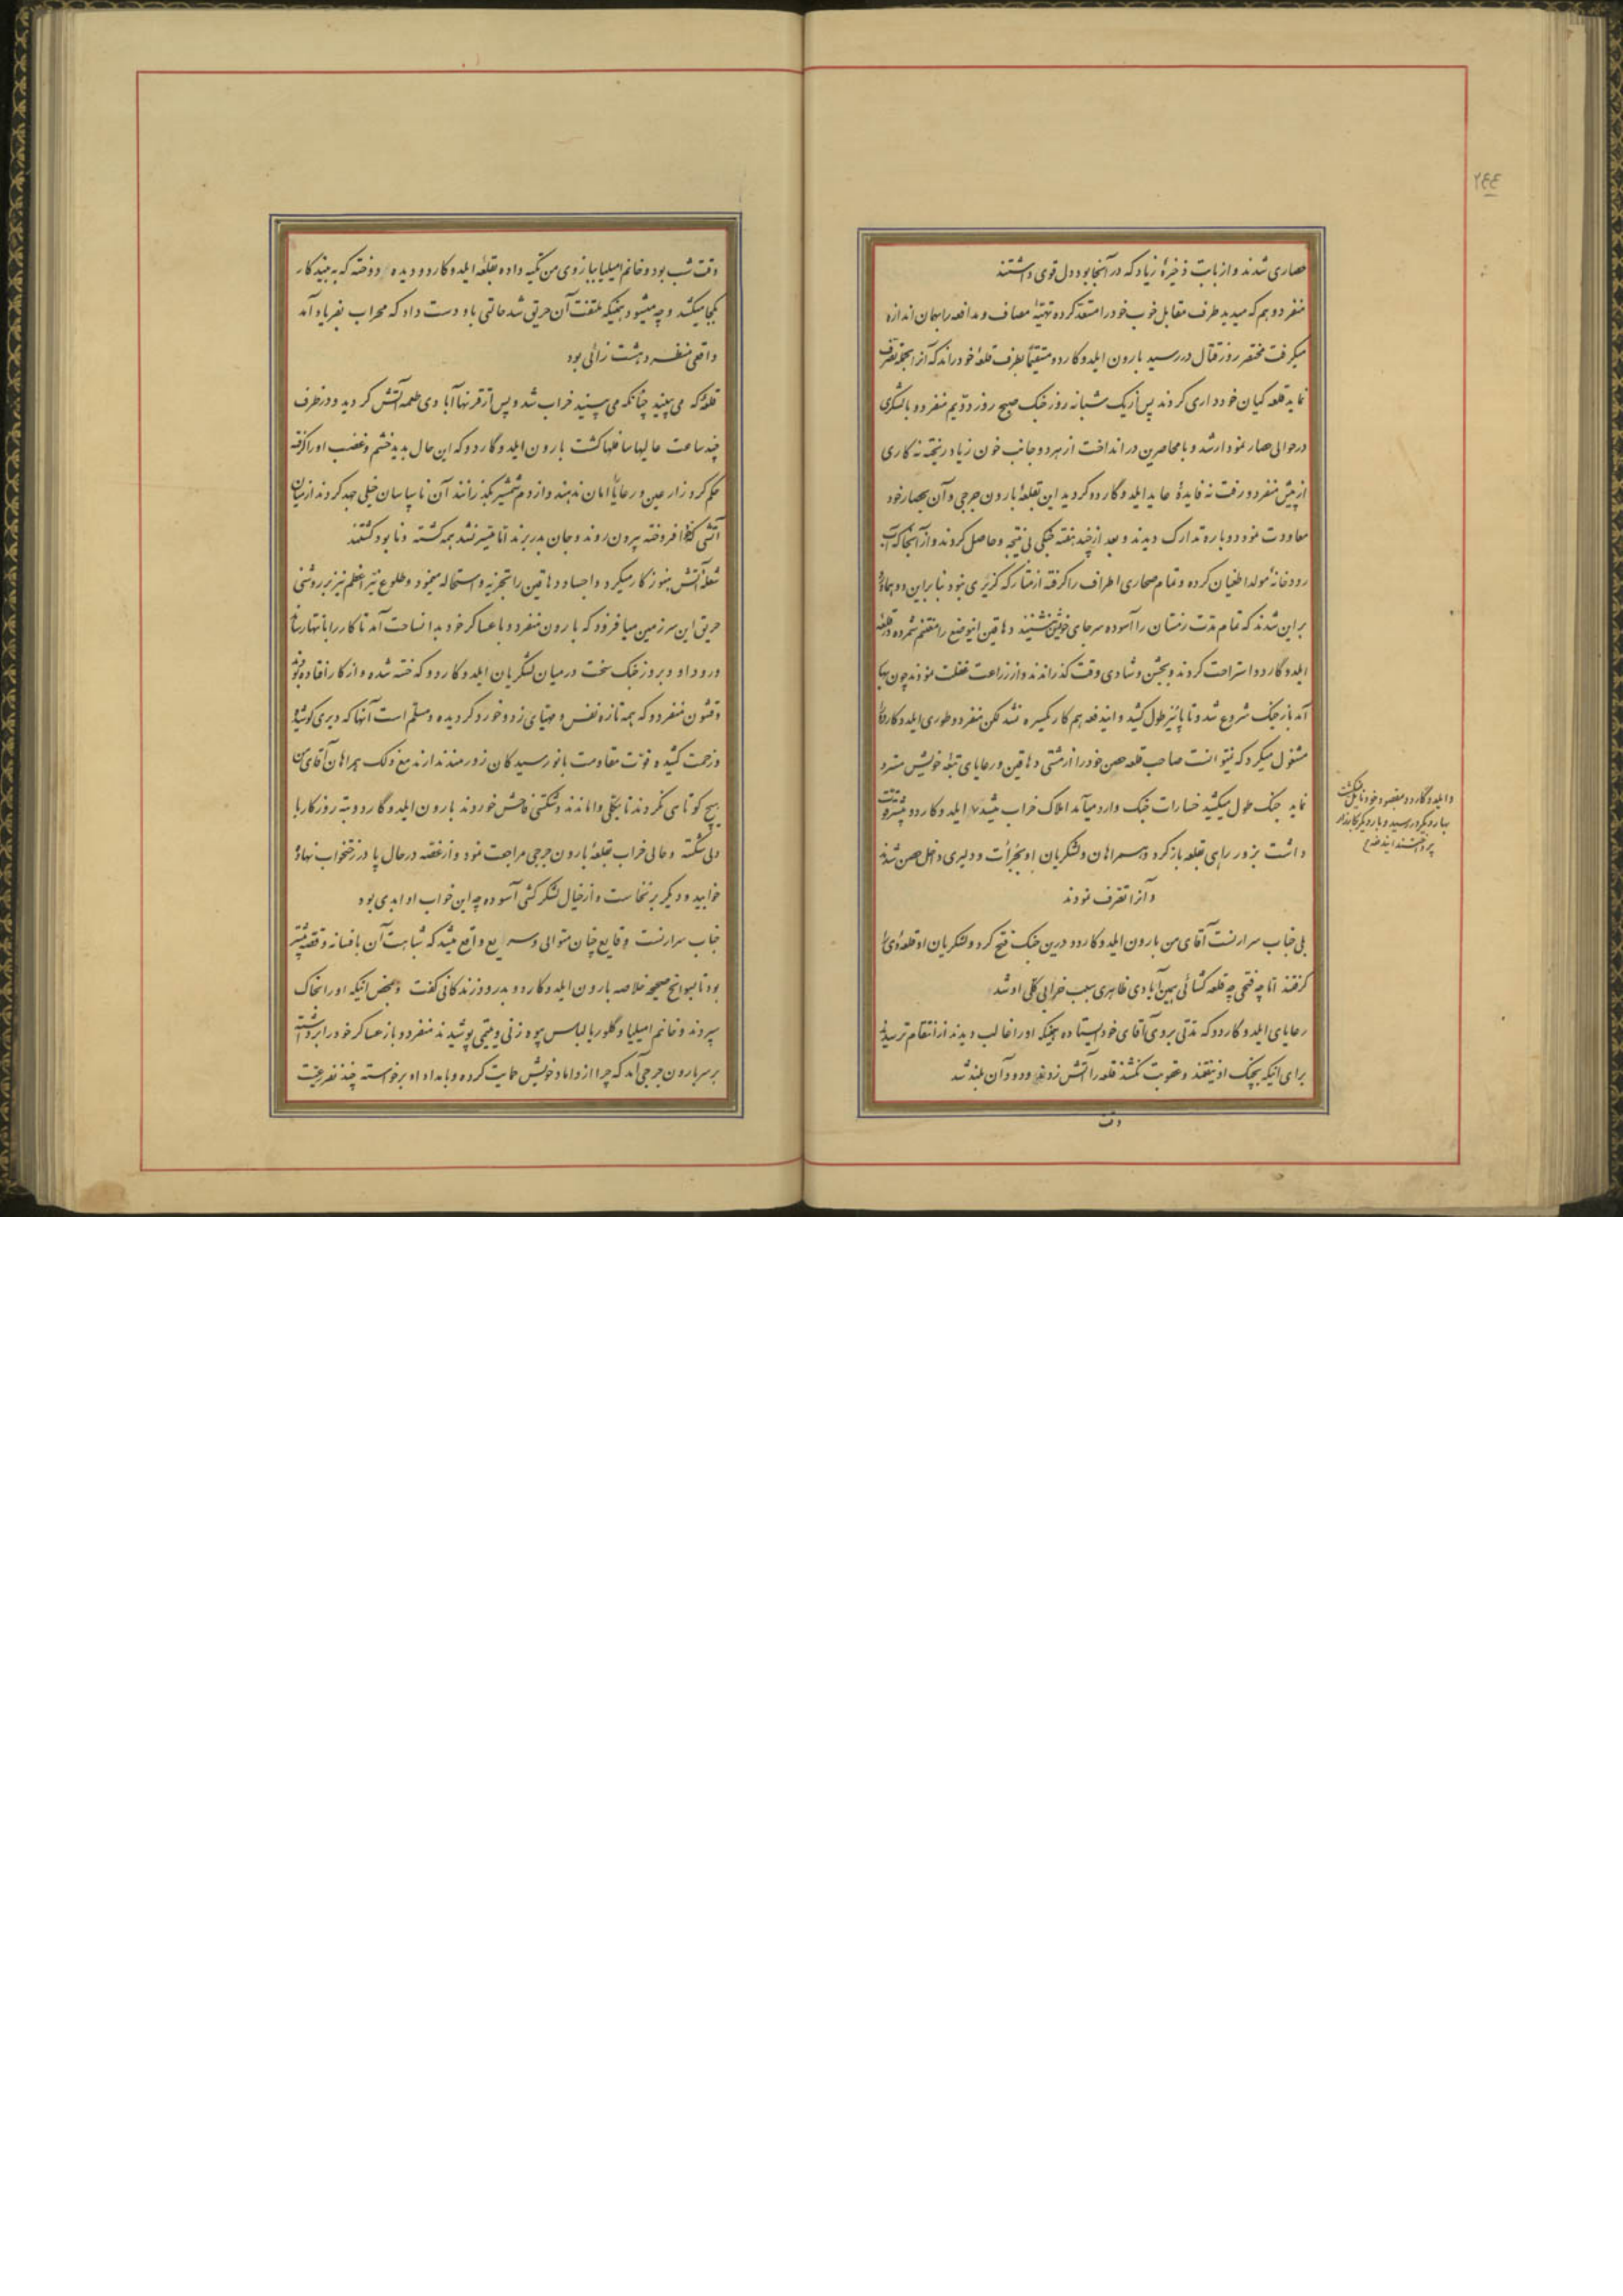 ۲۴۴
حصاری شدند و از بابت ذخیرهٔ زیاد که در آنجا بود دل قوی داشتند
منفردو هم که میدید طرف مقابل خوب خود را مستعد کرده تهیّه مصاف و مدافعه را بهمان اندازه
میگرفت مختصر روز قتال در رسید بارون ایلدوکاردو مستقیماً بطرف قلعهٔ خود راند که آنرا بحیطه تصرف
نماید قلعه کیان خودداری کردند پس از یک شبانه روز جنک صبح روز دویم منفردو با لشکری
در حوالی حصار نمودار شد و با محاصرین در انداخت از هر دو جانب خون زیاد ریخته نه کاری
از پیش منفردو رفت نه فایدهٔ عاید ایلدوکاردو کردید این بقلعهٔ بارون جرجی و آن بحصار خود
معاودت نمود دوباره تدارک دیدند و بعد از چند هفته جنکی بی نتیجه و حاصل کردند و از آنجا که آب
رودخانهٔ مولدا طغیان کرده و تمام صحاری اطراف را گرفته از متارکه کزیری نبود بنا براین دو هماورد
بر این شدند که تمام مدّت زمستان را آسوده سر جای خویش بنشینند دهاقین اینوضع را مغتنم شمرده در قلعه
ایلدوگاردو استراحت کردند و بجشن و شادی وقت گذراندند و از زراعت غفلت نمودند چون بهار
آمد باز جنک شروع شد و تا پائیز طول کشید و ایندفعه هم کار یکسره نشد لکن منفردو طوری ایلدوکاردو را
مشغول میکرد که نتوانست صاحب قلعه حصن خود را از مشتی دهاقین و رعایای تبعهٔ خویش مسترد
نماید جنک طول میکشید خسارات جنک وارد میآمد املاک خراب میشد ۷ ایلدوکاردو پیشرفت
داشت بزور راهی بقلعه باز کرد و همراهان و لشکریان او بجرأت و دلیری داخل حصن شدند
و آنرا تصرف نمودند
بلی جناب سرارنست آقای من بارون ایلدوکاردو درین جنک فتح کرد و لشکریان او قلعهٔ وی را
گرفتند امّا چه فتحی چه قلعه کشائی همین آبادی ظاهری سبب خرابی کلی او شد
رعایای ایلدوکاردو که مدّتی بروی آقای خود ایستاده همینکه او را غالب دیدند از انتقام ترسیدند
برای اینکه بچنک او نیفتند و عقوبت نکشند قلعه را آتش زدند و دود آن بلند شد
وقت
و ایلدوگاردو بمقصود خود نایل نمیکشت
بهار دیکر در رسید و بار دیکر بکارزار
پرداختند ایندفعه
وقت شب بود و خانم امیلیا ببازوی من تکیه داده بقلعهٔ ایلدوکاردو دیده دوخته که به بیند کار
بکجا میکشد و چه میشود همینکه ملتفت آن حریق شد حالتی باو دست داد که محراب بفریاد آمد
واقعی منظره دهشت زائی بود
قلعهٔ که می بینید چنانکه می بینید خراب شد و پس از قرنها آبادی طعمه آتش کردید و در ظرف
چند ساعت عالیها سافلها کشت بارون ایلدوگاردو که این حال بدید خشم و غضب او را گرفته
حکم کرد زارعین و رعایا را امان ندهند و از دم شمشیر بگذرانند آن ناسپاسان خیلی جهد کردند از میان
آتشی که خود افروخته بیرون روند و جان بدر برند امّا میسّر نشد همه کشته و نابود کشتند
شعلهٔ آتش هنوز کار میکرد و اجساد دهاقین را تجزیه و استحاله مینمود و طلوع نیّر اعظم نیز بر روشنی
حریق این سرزمین میافزود که بارون منفردو با عساکر خود بدانساحت آمد تا کار را بانتها رساند
ورود او و بروز جنک سخت در میان لشکریان ایلدوکاردو که خسته شده و از کار افتاده بودند
و قشون منفردو که همه تازه نفس و مهیّای زد و خورد کردیده و مسلّم است آنها که دیری کوشیده
و زحمت کشیده قوّت مقاومت با نو رسیدکان زورمند ندارند مع ذلک همراهان آقای من
هیچ کوتاهی نکردند تا بکلّی واماندند و شکستی فاحش خوردند بارون ایلدوگاردو تبه روزگار با
دلی شکسته و حالی خراب بقلعهٔ بارون جرجی مراجعت نمود و از غصّه در حال پا در رختخواب نهاد
خوابید و دیگر بر نخاست و از خیال لشکر کشی آسوده چه این خواب او ابدی بود
جناب سرارنست وقایع چنان متوالی و سریع واقع میشد که شباهت آن بافسانه و قصّه بیشتر
بود تا بسوانح صحیحه خلاصه بارون ایلدوکاردو بدرود زندکانی گفت و بمحض اینکه او را بخاک
سپردند و خانم امیلیا و گلوریا لباس بیوه زنی و یتیمی پوشیدند منفردو باز عساکر خود را برداشته
بر سر بارون جرجی آمد که چرا از داماد خویش حمایت کرده و بامداد او برخواسته چند نفر رعیّت